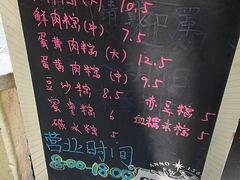 鲜肉粽(大) 10.5
鲜肉粽(中) 7.5
蛋黄肉粽(大) 12.5
蛋黄肉粽(中) 9.5
豆沙粽 8.5
蜜枣粽 6
碱水粽 5
赤豆粽 5
血糯米粽 5
营业时间
8:00-18:00
ANNO